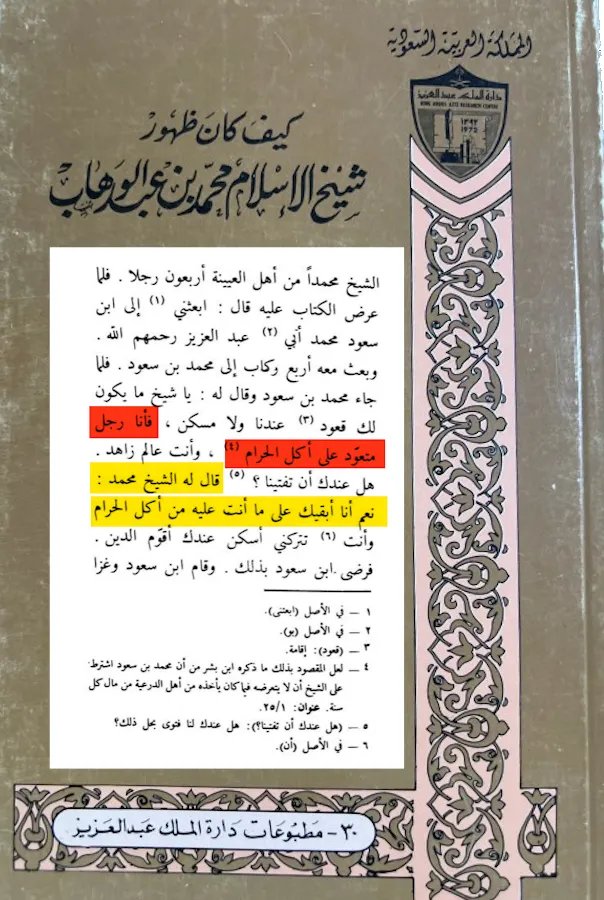 المملكة العربية السعودية
دارة الملك عبدالعزيز
KING ABDUL AZIZ RESEARCH CENTRE
١٣٩٢
1972
كيف كان ظهور
شيخ الإسلام محمد بن عبد الوهاب
الشيخ محمداً من أهل العيينة أربعون رجلا . فلما
عرض الكتاب عليه قال : ابعثني (١) إلى ابن
سعود محمد أبي (٢) عبد العزيز رحمهم الله .
وبعث معه أربع ركاب إلى محمد بن سعود . فلما
جاء محمد بن سعود وقال له : يا شيخ ما يكون
لك قعود (٣) عندنا ولا مسكن ، فأنا رجل
متعوّد على أكل الحرام (٤) ، وأنت عالم زاهد .
هل عندك أن تفتينا ؟ (٥) قال له الشيخ محمد :
نعم أنا أبقيك على ما أنت عليه من أكل الحرام
وأنت (٦) تتركني أسكن عندك أقوّم الدين .
فرضى ابن سعود بذلك . وقام ابن سعود وغزا
١ – في الأصل (ابعثنى).
٢ – في الأصل (بو).
٣ – (قعود): إقامة.
٤ – لعل المقصود بذلك ما ذكره ابن بشر من أن محمد بن سعود اشترط
على الشيخ أن لا يتعرضه فيما كان يأخذه من أهل الدرعية من مال كل
سنة. عنوان: ٢٥/١.
٥ – (هل عندك أن تفتينا؟): هل عندك لنا فتوى بحل ذلك؟
٦ – في الأصل (أن).
٣٠ - مطبوعات دارة الملك عبد العزيز